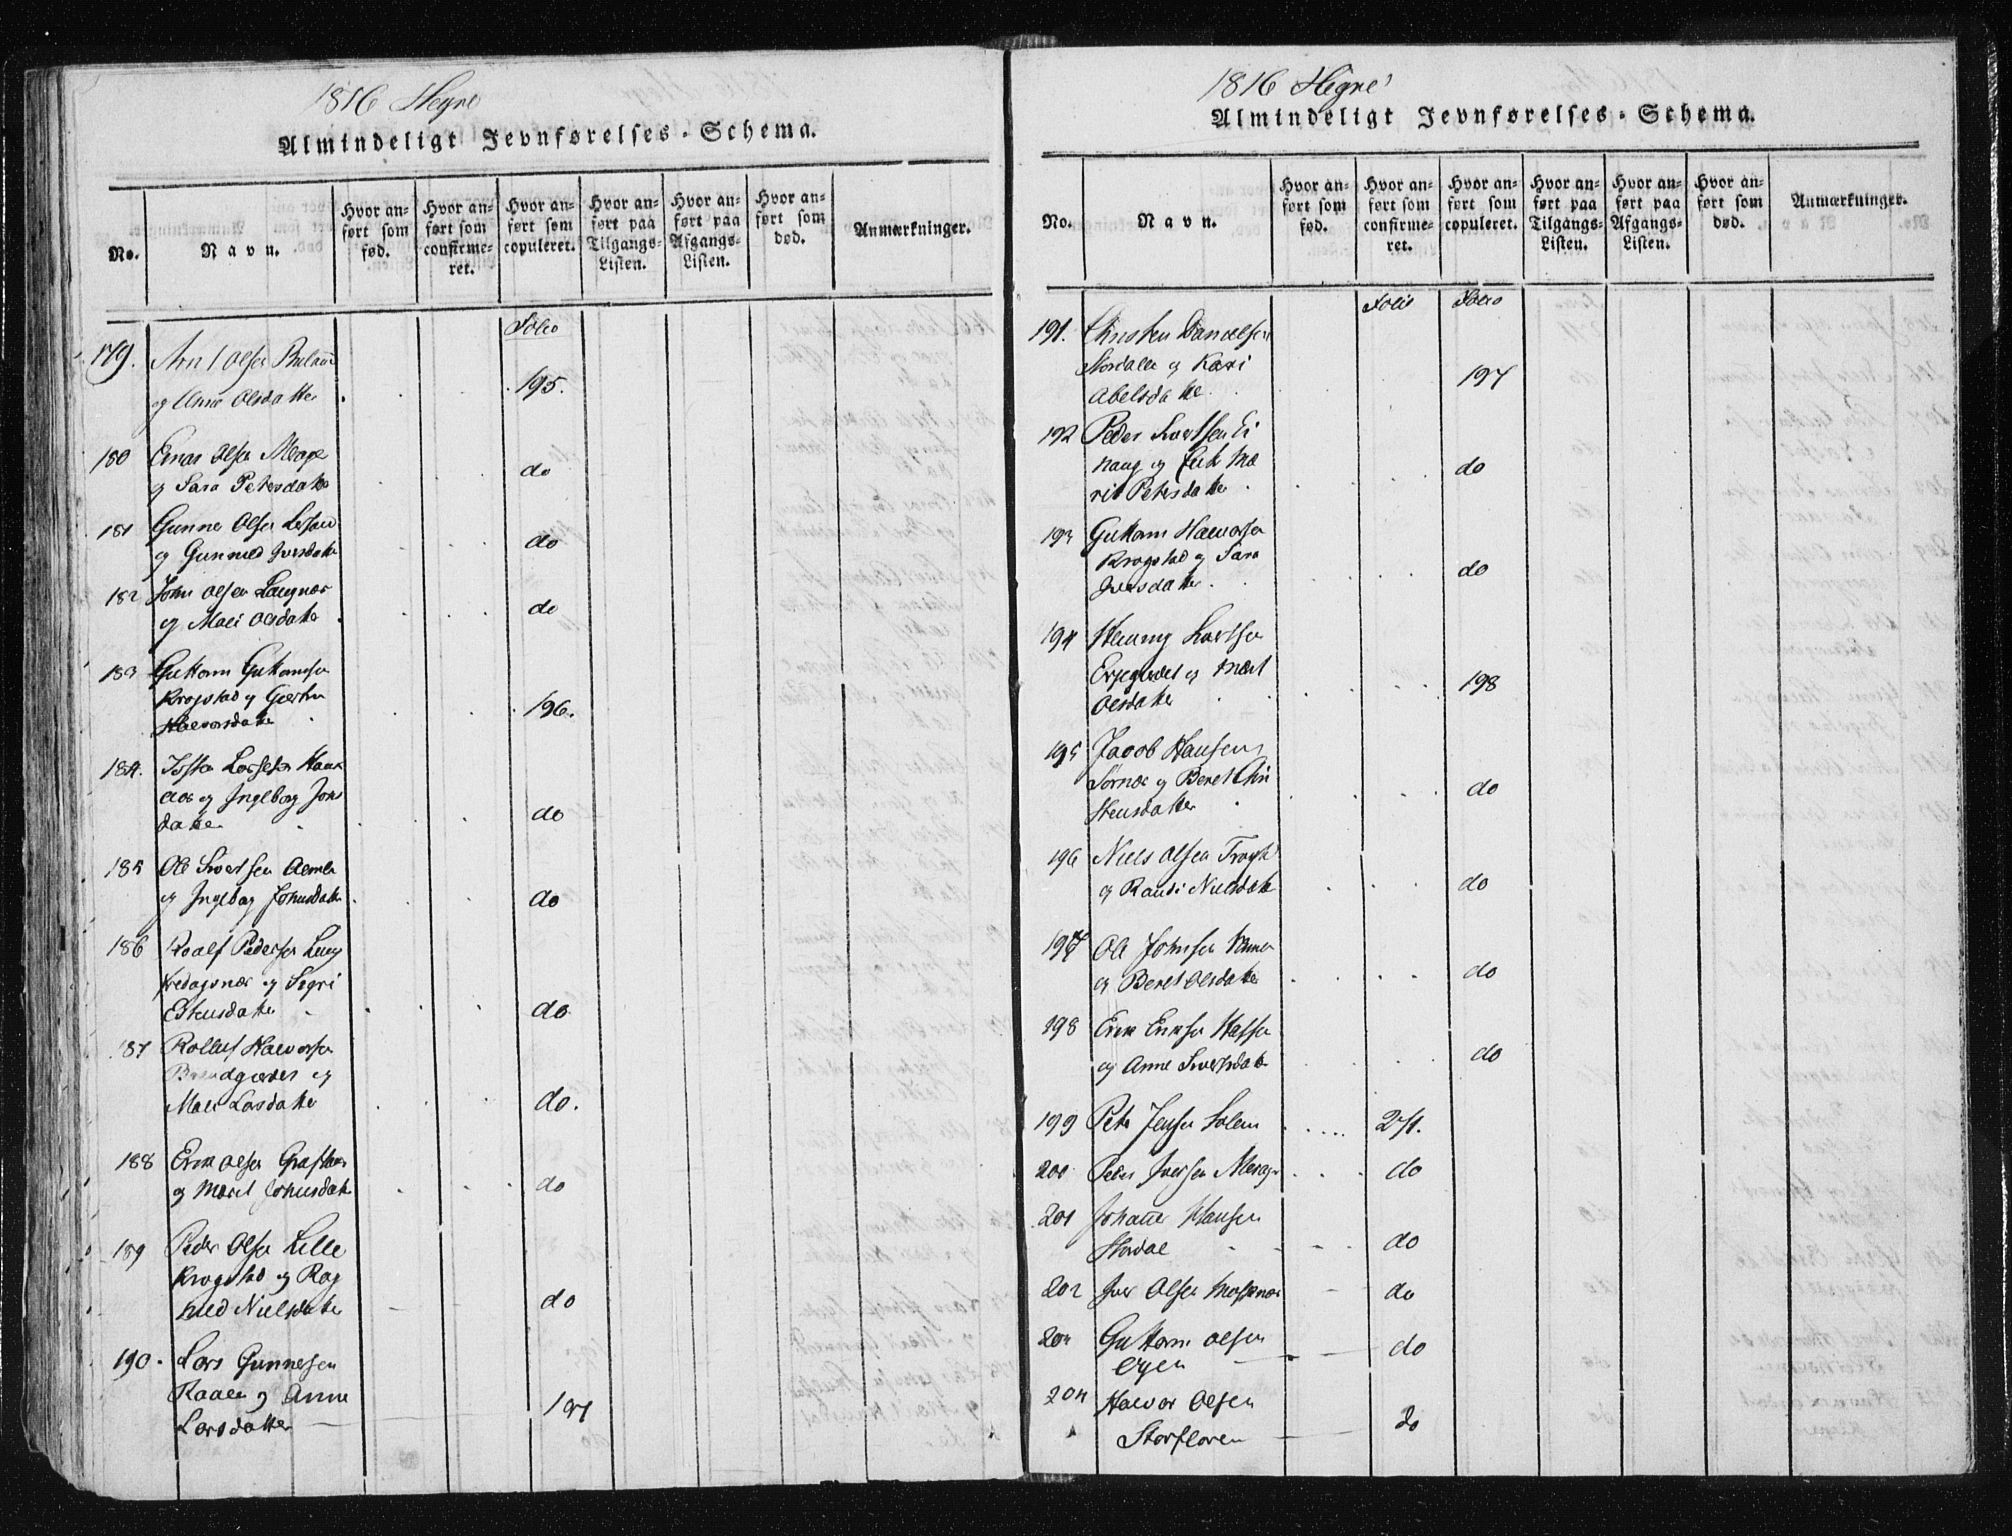 1816 Hegre
Almindeligt Jevnførelses-Schema.
No.
Navn.
Hvor anført som fød.
Hvor anført som confirmeret.
Hvor anført som copuleret.
Hvor anført paa Tilgangs-Listen.
Hvor anført paa Afgangs-Listen.
Hvor anført som død.
Anmærkninger.
Folio
179. Arnt Olsen
og Anne Olsdatter 195.
180 Einar Olsen Merage
og Sara Petersdatter do
181 Gunner Olsen
og Gunnild Iversdatter do
182 John Olsen Langnær
og Mali Olsdatter do
183 Guttorm Guttormsen
Krogstad og Giertru
Halvorsdatter 196.
184. Larsen
og Ingeborg Jons
datter do
185 Ole Sivertsen
og Ingebor Johnsdatter do
186 Roalf Pedersen
og Sigri
Estensdatter do
187 Rolluf Halvorsen
og
Mali Larsdatter do.
188 Erik Olsen
og Marit Johnsdatter do
189 Peder Olsen Lille
Krogstad og Rag
nild Nielsdatter do
190. Lars Gunnersen
Raaen og Anne
Larsdatter 197
1816 Hegre
Almindeligt Jevnførelses-Schema.
No.
Navn.
Hvor anført som fød.
Hvor anført som confirmeret.
Hvor anført som copuleret.
Hvor anført paa Tilgangs-Listen.
Hvor anført paa Afgangs-Listen.
Hvor anført som død.
Anmærkninger.
Folio Folio
191. Christen Danielsen
Stordalen og Kari
Abelsdatter 197
192 Peder Sivertsen
naug og Ma
rit Petersdatter do
193 Guttorm Halvorsen
Krogstad og Sara
Iversdatter do
194 Henning Sivertsen
og Marit
Olsdatter 198
195 Jacob Hansen
og Beret Chri
stensdatter do
196 Niels Olsen
og Randi Nielsdatter do
197 Ole Johnsen
og Beret Olsdatter do
198 Erik Eriksen
og Anne Sivertsdatter do
199 Peter Jensen Solem 271.
200 Peder Iversen Merage do
201 Johan Hansen
Stordal do
202 Iver Olsen do
203 Guttorm Olsen
do
204 Halvor Olsen
Storfloren do